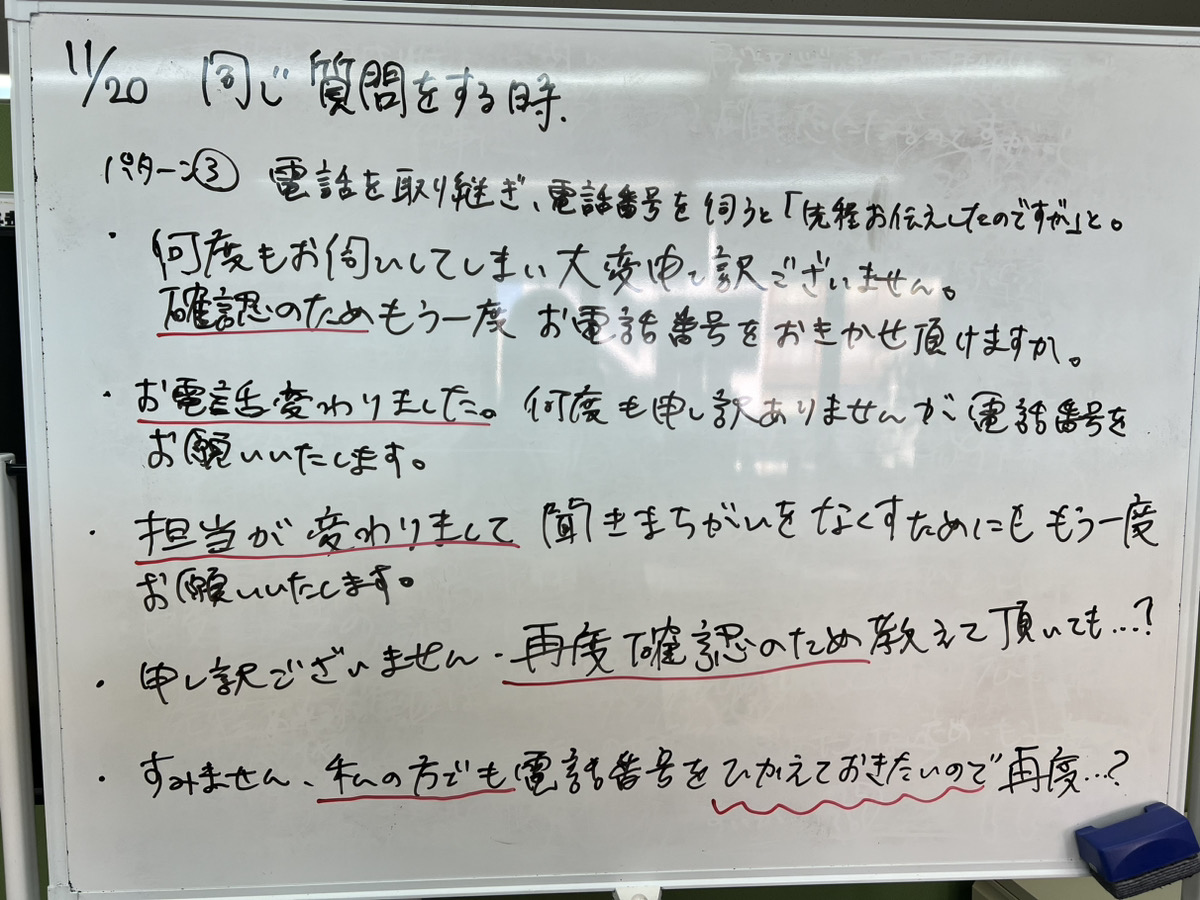 11/20 同じ質問をする時.
パターン③ 電話を取り継ぎ、電話番号を伺うと「先程お伝えしたのですが」と。
・何度もお伺いしてしまい大変申し訳ございません。
確認のためもう一度 お電話番号をおきかせ頂けますか。
・お電話変わりました。何度も申し訳ありませんが 電話番号を
お願いいたします。
・担当が変わりまして 聞きまちがいをなくすためにも もう一度
お願いいたします。
・申し訳ございません・再度確認のため教えて頂いても…?
・すみません、私の方でも電話番号をひかえておきたいので再度…?